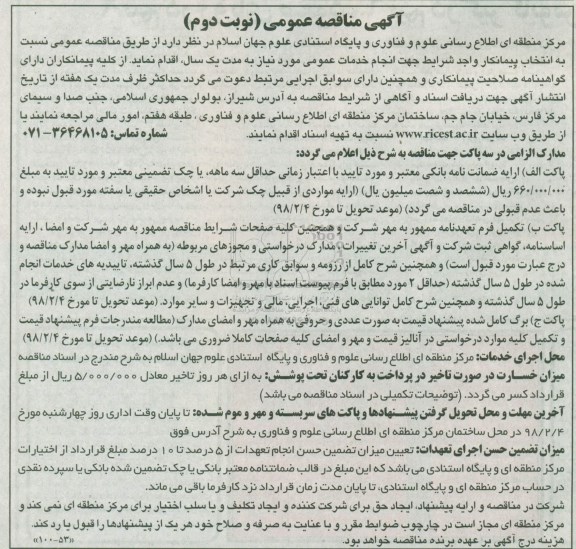 آگهی مناقصه عمومی (نوبت دوم)
مرکز منطقه ای اطلاع رسانی علوم و فناوری و پایگاه استنادی علوم جهان اسلام در نظر دارد از طریق مناقصه عمومی نسبت
به انتخاب پیمانکار واجد شرایط جهت انجام خدمات عمومی مورد نیاز به مدت یک سال، اقدام نماید. از کلیه پیمانکاران دارای
گواهینامه صلاحیت پیمانکاری و همچنین دارای سوابق اجرایی مرتبط دعوت می گردد حداکثر ظرف مدت یک هفته از تاریخ
انتشار آگهی جهت دریافت اسناد و آگاهی از شرایط مناقصه به آدرس شیراز، بولوار جمهوری اسلامی، جنب صدا و سیمای
مرکز فارس، خیابان جام جم، ساختمان مرکز منطقه ای اطلاع رسانی علوم و فناوری ، طبقه هفتم، امور مالی مراجعه نمایند یا
از طریق وب سایت www.ricest.ac.ir نسبت به تهیه اسناد اقدام نمایند. شماره تماس: ۳۶۴۶۸۱۰۵-۰۷۱
مدارک الزامی در سه پاکت جهت مناقصه به شرح ذیل اعلام می گردد:
پاکت الف) ارایه ضمانت نامه بانکی معتبر و مورد تایید با اعتبار زمانی حداقل سه ماهه، یا چک تضمینی معتبر و مورد تایید به مبلغ
۶۶۰/۰۰۰/۰۰۰ ریال (ششصد و شصت میلیون یال) (ارایه مواردی از قبیل چک شرکت یا اشخاص حقیقی یا سفته مورد قبول نبوده و
باعث عدم قبولی در مناقصه می گردد) (موعد تحویل تا مورخ ۹۸/۲/۴)
پاکت ب) تکمیل فرم تعهدنامه ممهور به مهر شرکت و همچنین کلیه صفحات شرایط مناقصه ممهور به مهر شرکت و امضا ، ارایه
اساسنامه، گواهی ثبت شرکت و آگهی آخرین تغییرات، مدارک درخواستی و مجوزهای مربوطه (به همراه مهر و امضا مدارک مناقصه و
درج عبارت مورد قبول است) و همچنین شرح کامل از رزومه و سوابق کاری مرتبط در طول ۵ سال گذشته، تاییدیه های خدمات انجام
شده در طول ۵ سال گذشته (حداقل ۲ مورد مطابق با فرم پیوست اسناد با مهر و امضا کارفرما) و عدم ابراز نارضایتی از سوی کارفرما در
طول ۵ سال گذشته و همچنین شرح کامل توانایی های فنی، اجرایی، مالی و تجهیزات و سایر موارد. (موعد تحویل تا مورخ ۹۸/۲/۴)
پاکت ج) برگ کامل شده پیشنهاد قیمت به صورت عددی و حروفی به همراه مهر و امضای مدارک (مطالعه مندرجات فرم پیشنهاد قیمت
و تکمیل کلیه موارد درخواستی در آنالیز قیمت و مهر و امضای کلیه صفحات کاملا ضروری می باشد.) (موعد تحویل تا مورخ ۹۸/۲/۴)
محل اجرای خدمات: مرکز منطقه ای اطلاع رسانی علوم و فناوری و پایگاه استنادی علوم جهان اسلام به شرح مندرج در اسناد مناقصه
میزان خسارت در صورت تاخیر در پرداخت به کارکنان تحت پوشش: به ازای هر روز تاخیر معادل ۵/۰۰۰/۰۰۰ ریال از مبلغ
قرارداد کسر می گردد. (توضیحات تکمیلی در اسناد مناقصه می باشد)
آخرین مهلت و محل تحویل گرفتن پیشنهادها و پاکت های سربسته و مهر و موم شده: تا پایان وقت اداری روز چهارشنبه مورخ
۹۸/۲/۴ در محل ساختمان مرکز منطقه ای اطلاع رسانی علوم و فناوری به شرح آدرس فوق
میزان تضمین حسن اجرای تعهدات: تعیین میزان تضمین حسن انجام تعهدات از ۵ درصد تا ۱۰ درصد مبلغ قرارداد از اختیارات
مرکز منطقه ای و پایگاه استنادی می باشد که این مبلغ در قالب ضمانتنامه معتبر بانکی یا چک تضمین شده بانکی یا سپرده نقدی
در حساب مرکز منطقه ای و پایگاه استنادی، تا پایان مدت زمان قرارداد نزد کارفرما باقی می ماند.
شرکت در مناقصه و ارایه پیشنهاد، ایجاد حق برای شرکت کننده و ایجاد تکلیف و یا سلب اختیار برای مرکز منطقه ای نمی کند و
مرکز منطقه ای مجاز است در چارچوب ضوابط مقرر و با عنایت به صرفه و صلاح خود هر یک از پیشنهادها را قبول یا رد کند.
هزینه درج آگهی بر عهده برنده مناقصه خواهد بود. «۱۰۰-۵۳»